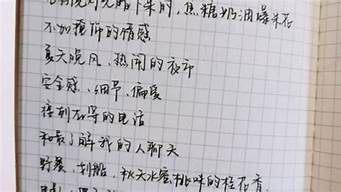 下来的，焦糖奶油爆米花
不加掩饰的情感
夏天晚风、热闹的夜市
安全感、细节、偏爱
接到在等的电话
和最了解我的人聊天
野餐、划船、秋天水蜜桃味的桂花香